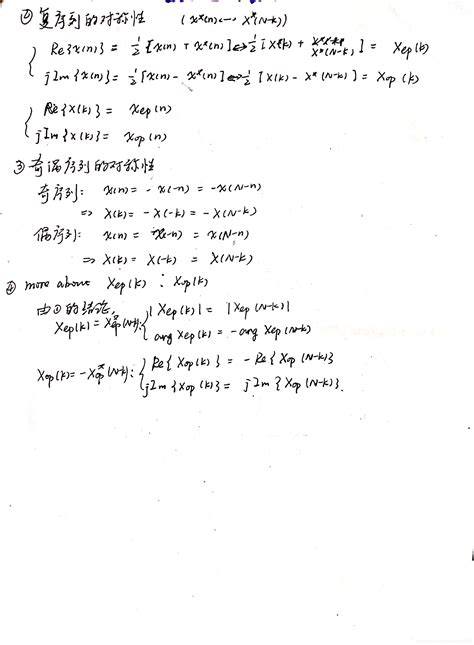 ② 复序列的对称性 (x*(n) ↔ X*(N-k))
{ Re{x(n)} = ½[x(n) + x*(n)] ⇔ ½[X(k) + X*(N-k)] = Xep(k)
jIm{x(n)} = ½[x(n) - x*(n)] ⇔ ½[X(k) - X*(N-k)] = Xop(k)
{ Re{X(k)} = xep(n)
jIm{X(k)} = xop(n)
③ 奇偶序列的对称性
奇序列: x(n) = -x(-n) = -x(N-n)
⇒ X(k) = -X(-k) = -X(N-k)
偶序列: x(n) = x(-n) = x(N-n)
⇒ X(k) = X(-k) = X(N-k)
④ more about Xep(k) : Xop(k)
由①的结论,
Xep(k) = Xep*(N-k): { |Xep(k)| = |Xep(N-k)|
arg Xep(k) = -arg Xep(N-k)
Xop(k) = -Xop*(N-k): { Re{Xop(k)} = -Re{Xop(N-k)}
jIm{Xop(k)} = jIm{Xop(N-k)}.